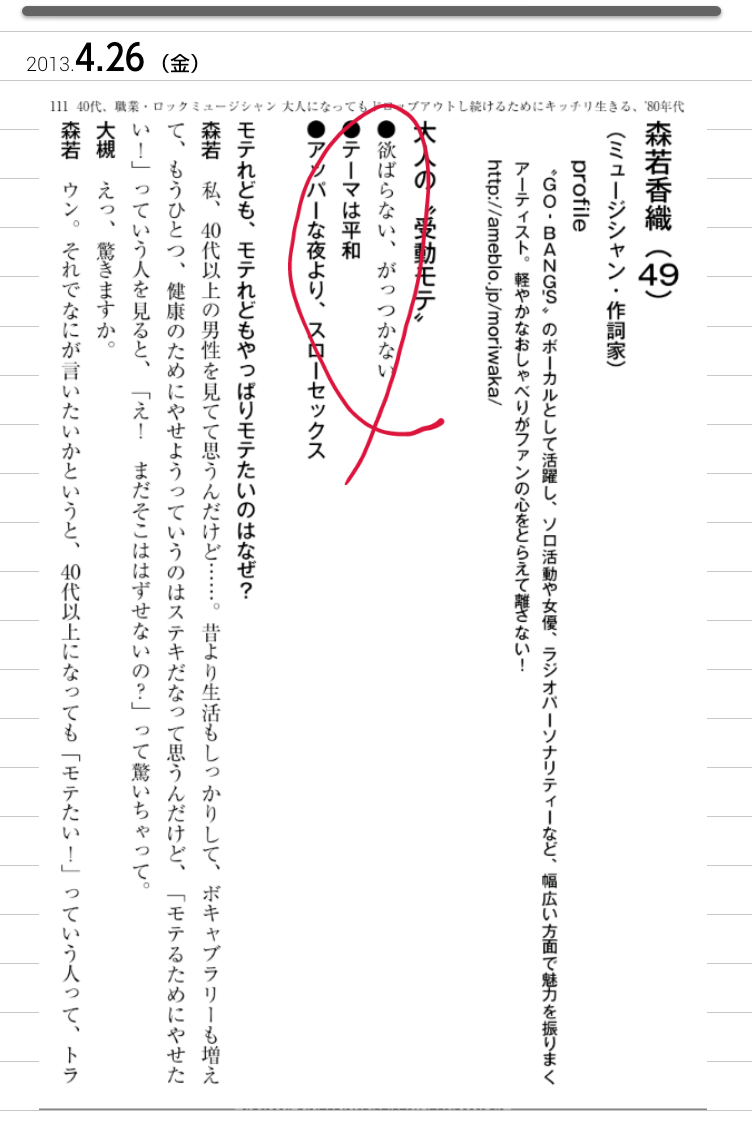 2013.4.26（金）
111 40代、職業・ロックミュージシャン 大人になってもドロップアウトし続けるためにキッチリ生きる、'80年代
森若香織（49）
（ミュージシャン・作詞家）
profile
〝GO-BANG'S〟のボーカルとして活躍し、ソロ活動や女優、ラジオパーソナリティーなど、幅広い方面で魅力を振りまく
アーティスト。軽やかなおしゃべりがファンの心をとらえて離さない！
http://ameblo.jp/moriwaka/
大人の〝受動モテ〟
●欲ばらない、がっつかない
●テーマは平和
●アッパーな夜より、スローセックス
モテれども、モテれどもやっぱりモテたいのはなぜ？
森若　私、40代以上の男性を見てて思うんだけど……。昔より生活もしっかりして、ボキャブラリーも増え
て、もうひとつ、健康のためにやせようっていうのはステキだなって思うんだけど、「モテるためにやせた
い！」っていう人を見ると、「え！　まだそこははずせないの？」って驚いちゃって。
大槻　えっ、驚きますか。
森若　ウン。それでなにが言いたいかというと、40代以上になっても「モテたい！」っていう人って、トラ